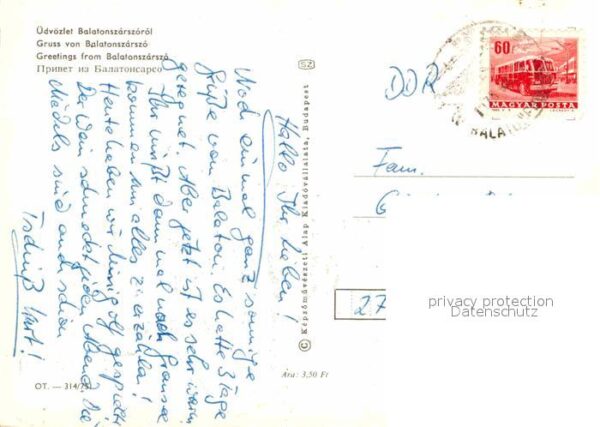 Üdvözlet Balatonszárszóról
Gruss von Balatonszárszó
Greetings from Balatonszárszó
Привет из Балатонсарсо
Hallo Ihr Lieben!
Noch einmal ganz sonnige
Grüße vom Balaton. Es hatte 3 Tage
geregnet. Aber jetzt ist es sehr warm.
Ihr müßt dann mal nach Gransee
kommen um alles zu erzählen!
Heute haben wir Minigolf gespielt
Der Wein schmeckt jeden Abend. Die
Mädels sind auch schön
Tschüß Kurt!
OT. — 314/751
Ára: 3,50 Ft
SZ
© Képzőművészeti Alap Kiadóvállalata, Budapest
60f
MAGYAR POSTA
BALATON
DDR
Fam.
G
27
privacy protection
Datenschutz